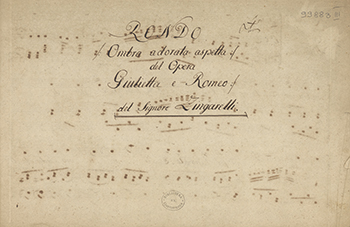 RONDO
Ombra adorata aspetta
del Opera
Giulietta e Romeo
del Signore Zingarelli